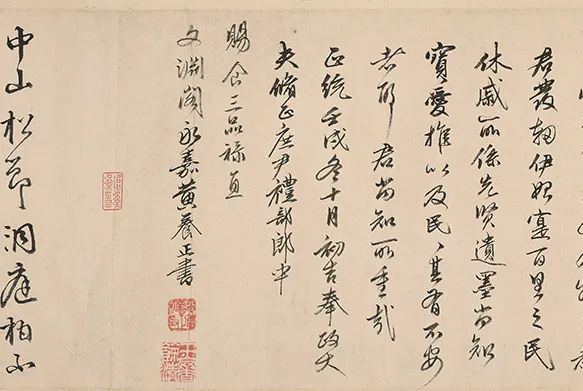 君發軔伊始寔百里之民
休戚所係先賢遺墨尚知
寶愛推以及民、其有不安
者耶君尚知所重哉
正統壬戌冬十月初吉奉政大
夫脩正庶尹禮部郎中
賜食三品祿直
文淵閣永嘉黃養正書
中山松節洞庭柏不